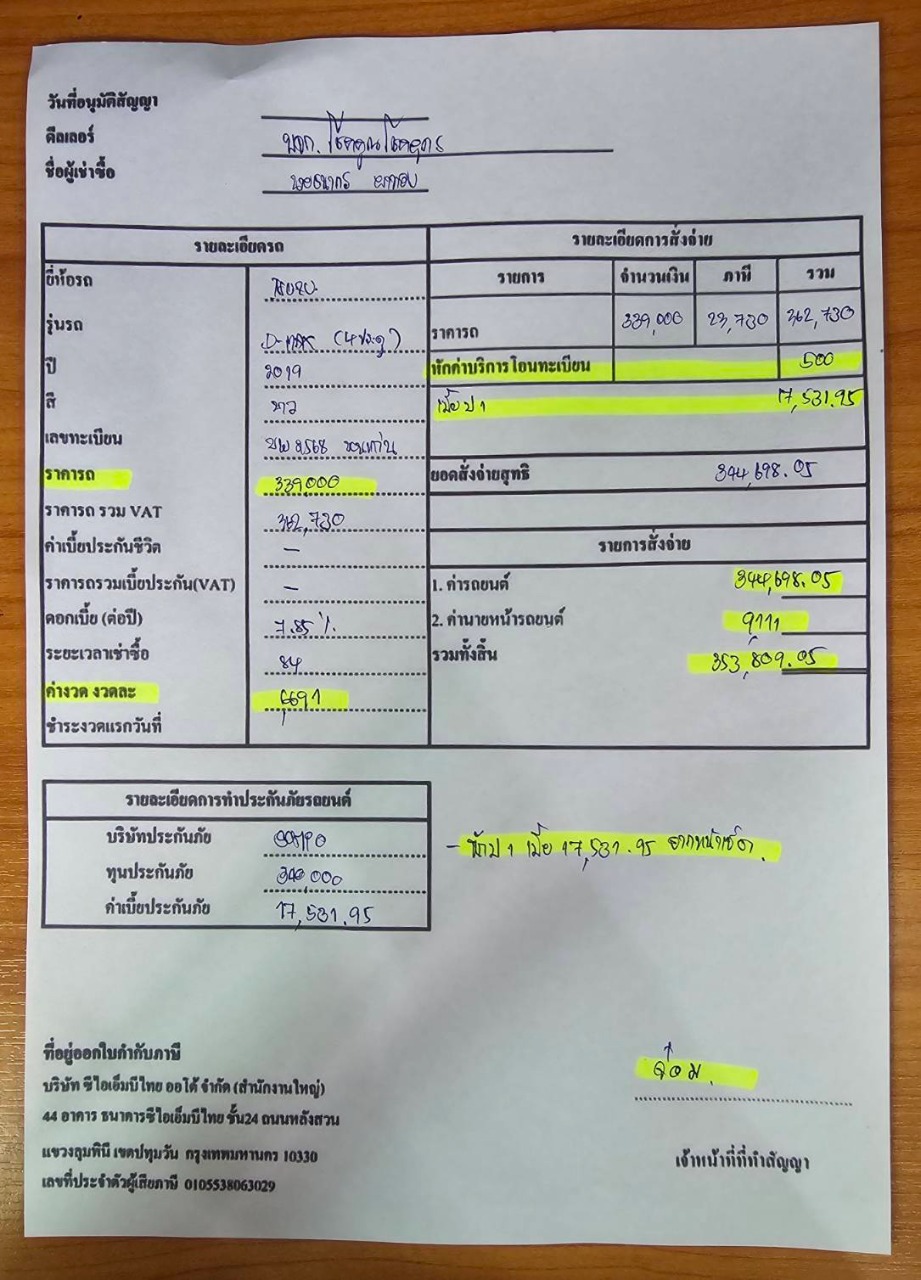 วันที่อนุมัติสัญญา
ดีลเลอร์ บจก.
ชื่อผู้เช่าซื้อ
รายละเอียดรถ
ยี่ห้อรถ
รุ่นรถ (4ประตู)
ปี 2019
สี ขาว
เลขทะเบียน 8568 ขอนแก่น
ราคารถ 339,000
ราคารถ รวม VAT 362,730
ค่าเบี้ยประกันชีวิต –
ราคารถรวมเบี้ยประกัน(VAT) –
ดอกเบี้ย (ต่อปี) 7.85 %
ระยะเวลาเช่าซื้อ 84
ค่างวด งวดละ 6,691
ชำระงวดแรกวันที่
รายละเอียดการสั่งจ่าย
รายการ จำนวนเงิน ภาษี รวม
ราคารถ 339,000 23,730 362,730
หักค่าบริการโอนทะเบียน 500
เบี้ย ป 1 17,531.95
ยอดสั่งจ่ายสุทธิ 344,698.05
รายการสั่งจ่าย
1. ค่ารถยนต์ 344,698.05
2. ค่านายหน้ารถยนต์ 9,111
รวมทั้งสิ้น 353,809.05
รายละเอียดการทำประกันภัยรถยนต์
บริษัทประกันภัย
ทุนประกันภัย 340,000
ค่าเบี้ยประกันภัย 17,531.95
– หัก ป 1 เบี้ย 17,531.95
ที่อยู่ออกใบกำกับภาษี
บริษัท ซีไอเอ็มบีไทย ออโต้ จำกัด (สำนักงานใหญ่)
44 อาคาร ธนาคารซีไอเอ็มบีไทย ชั้น24 ถนนหลังสวน
แขวงลุมพินี เขตปทุมวัน กรุงเทพมหานคร 10330
เลขที่ประจำตัวผู้เสียภาษี 0105538063029
เจ้าหน้าที่ที่ทำสัญญา